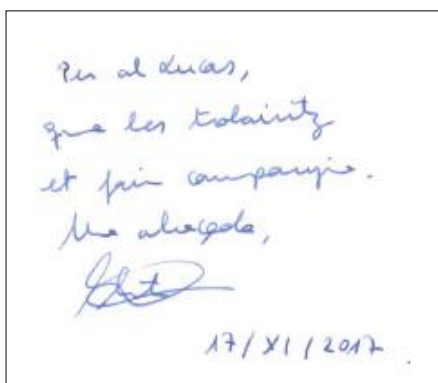 Per al Lucas,
que les
et fin companyia.
Una abraçada,
17/XI/2017